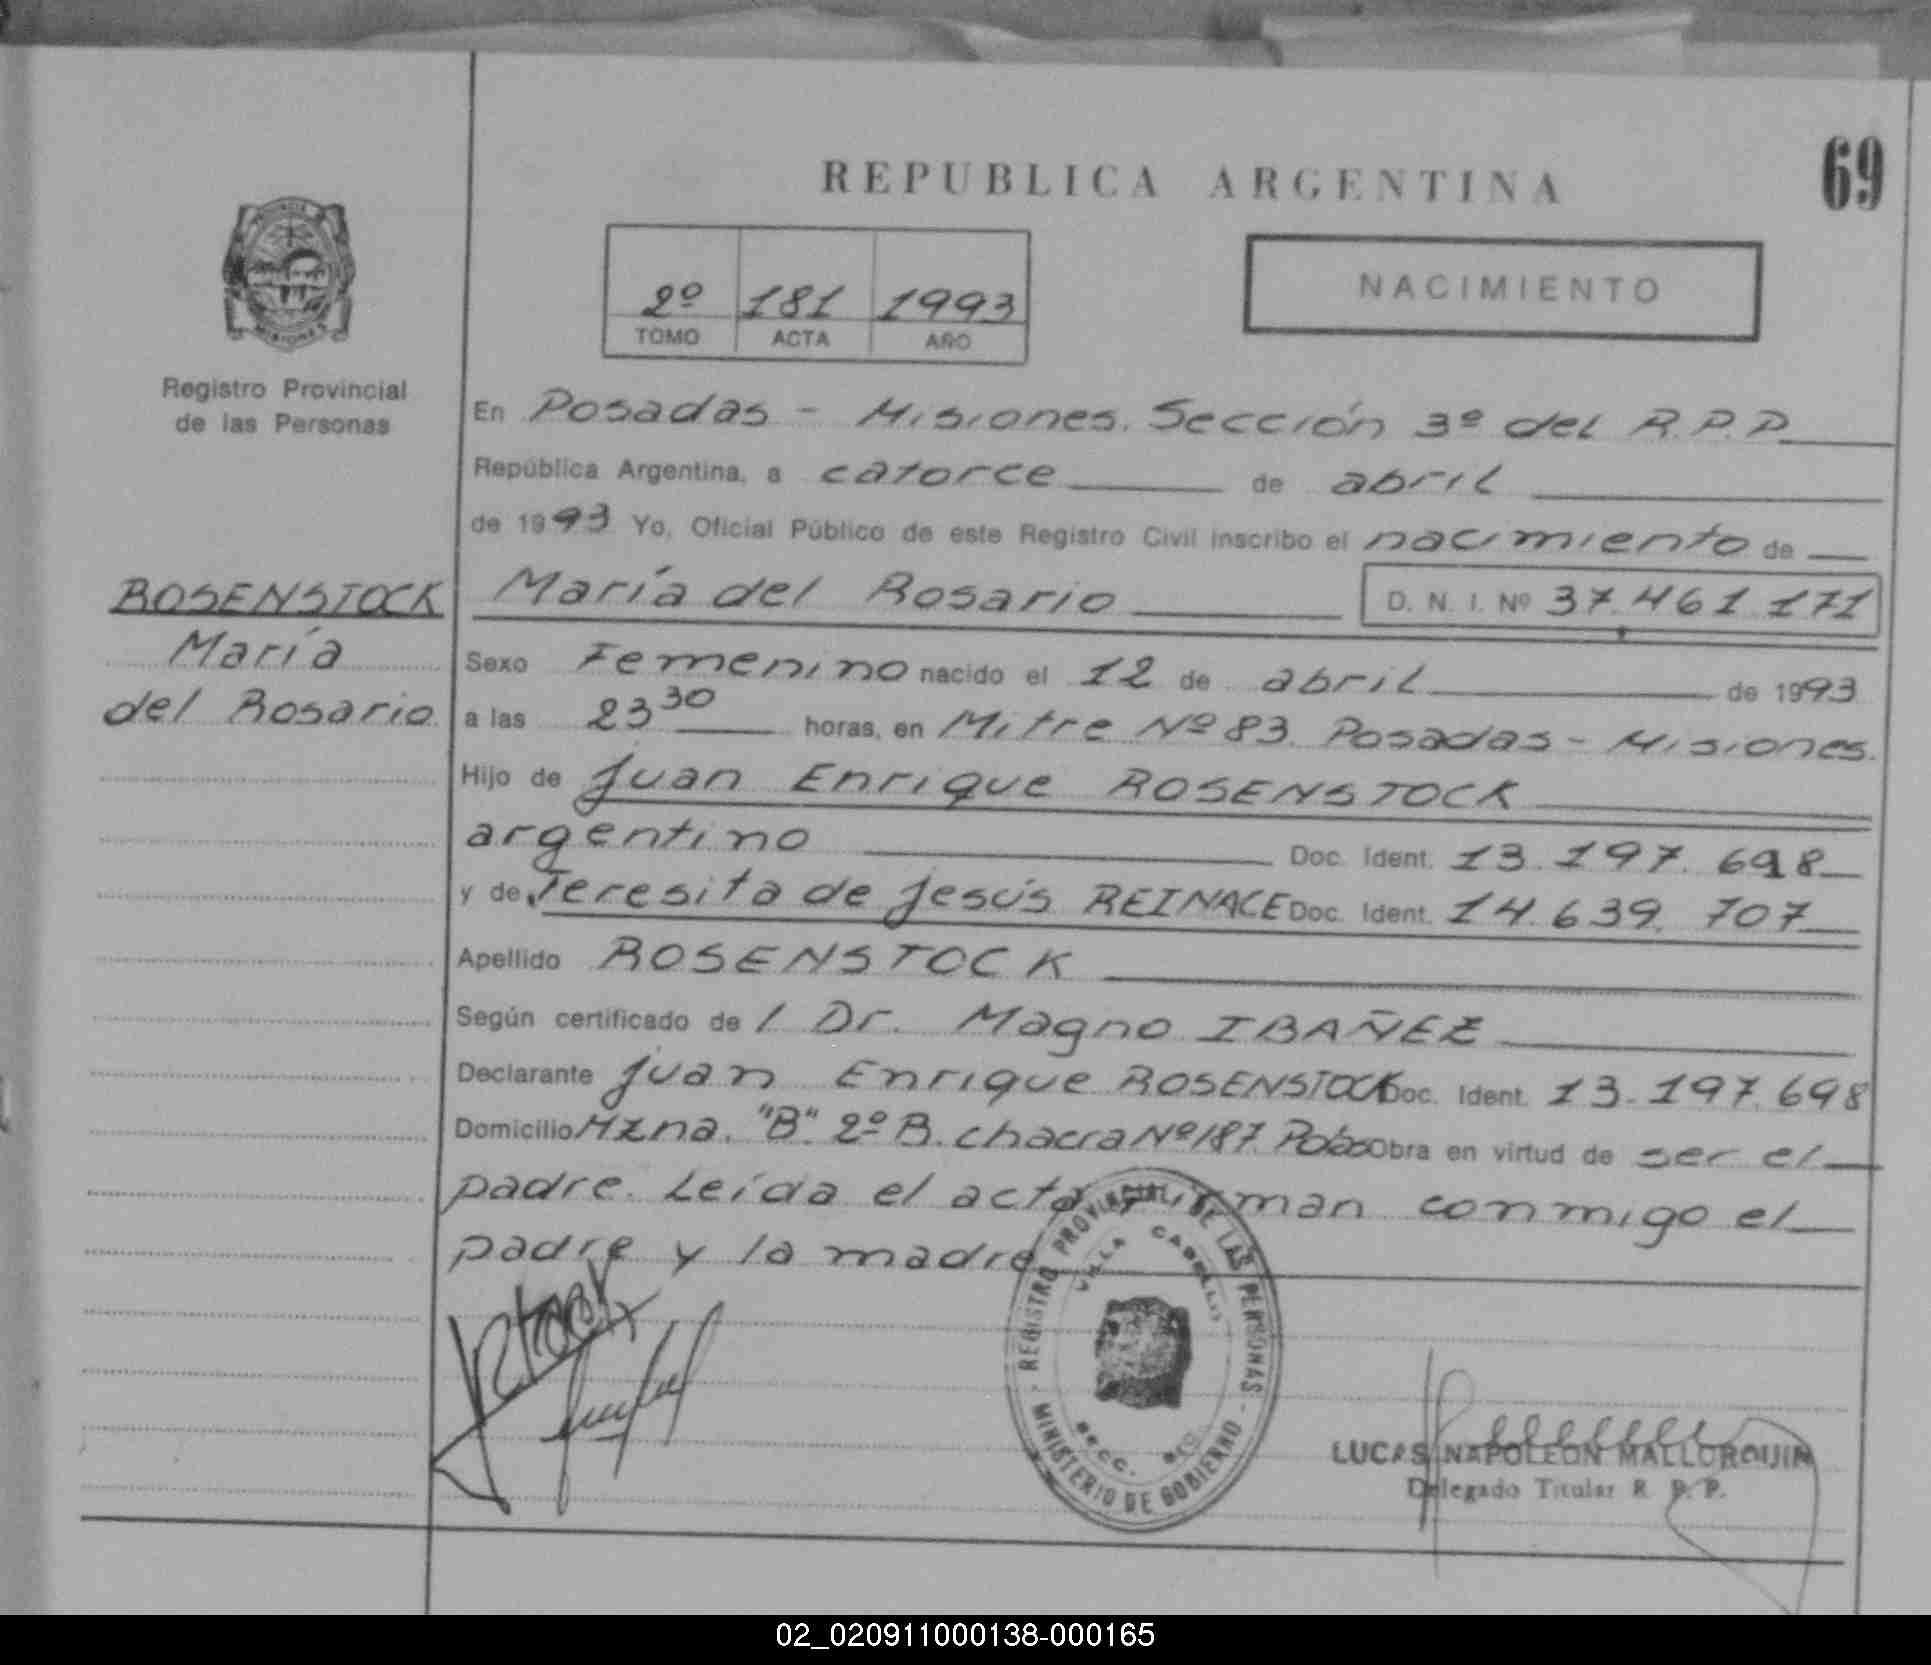 69
REPUBLICA ARGENTINA
2º 181 1993
TOMO ACTA AÑO
NACIMIENTO
Registro Provincial
de las Personas
ROSENSTOCK
María
del Rosario
En Posadas - Misiones. Sección 3ª del R.P.P.
República Argentina, a catorce de abril
de 1993 Yo, Oficial Público de este Registro Civil inscribo el nacimiento de
María del Rosario D. N. I. Nº 37.461.171
Sexo Femenino nacido el 12 de abril de 1993
a las 23 30 horas, en Mitre Nº 83. Posadas - Misiones.
Hijo de Juan Enrique ROSENSTOCK
argentino Doc. Ident. 13.197.698
y de Teresita de Jesús REINACE Doc. Ident. 14.639.707
Apellido ROSENSTOCK
Según certificado de l Dr. Magno IBAÑEZ
Declarante Juan Enrique ROSENSTOCK Doc. Ident. 13.197.698
Domicilio Mzna. "B" 2º B. chacra Nº 187. Obra en virtud de ser el
padre. Leída el acta firman conmigo el
padre y la madre
REGISTRO PROVINCIAL DE LAS PERSONAS
VILLA CABELLO
SECC.
MINISTERIO DE GOBIERNO
LUCAS NAPOLEON MALLORQUIN
Delegado Titular R. P. P.
02_020911000138-000165